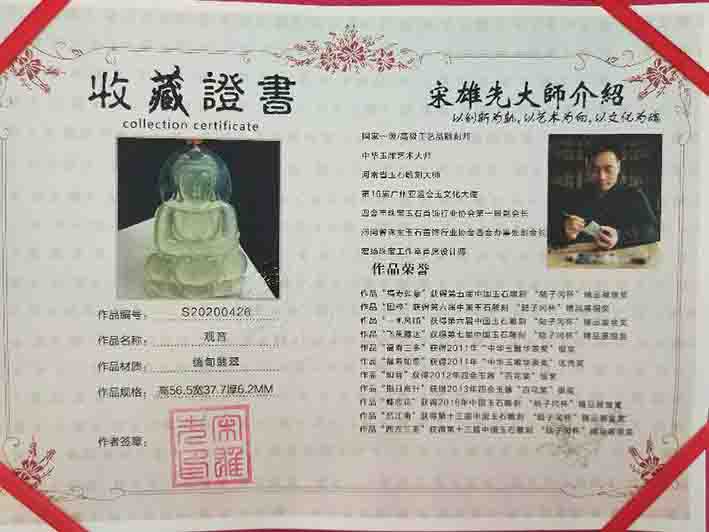 收藏證書
collection certificate
作品编号： S20200426
作品名称： 观音
作品材质： 缅甸翡翠
作品规格： 高56.5宽37.7厚6.2MM
作者签章：
宋雄先大師介紹
以创新为轨,以艺术为向,以文化为魂
国家一级/高级工艺品雕刻师
中华玉雕艺术大师
河南省玉石雕刻大师
第16届广州亚运会玉文化大使
四会市珠宝玉石首饰行业协会第一届副会长
河南省珠宝玉石首饰行业协会四会办事处副会长
珠宝工作室首席设计师
作品荣誉
获得第五届中国玉石雕刻 “陆子冈杯” 精品展银奖
获得第六届中国玉石雕刻 “陆子冈杯” 精品展铜奖
获得第六届中国玉石雕刻 “陆子冈杯” 精品展
作品“飞来” 获得第七届中国玉石雕刻 “陆子冈杯” 精品展银奖
作品“福寿三多” 获得2011年“中华玉雕华表奖” 银奖
作品“福寿如意” 获得2011年“中华玉雕华表奖” 优秀奖
作品“如音” 获得2012年四会玉器 “百花奖” 银奖
作品“指日高升” 获得2013年四会玉器 “百花奖” 银奖
获得2016年中国玉石雕刻 “陆子冈杯” 精品展银奖
获得第十三届中国玉石雕刻 “陆子冈杯” 精品展金奖
作品“西方三圣” 获得第十三届中国玉石雕刻 “陆子冈杯” 精品展银奖